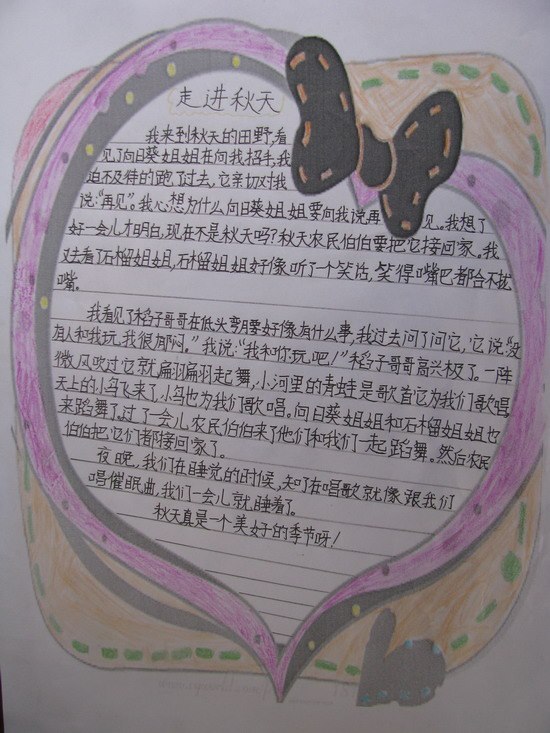 走进秋天
我来到秋天的田野,看
见了向日葵姐姐在向我招手,我
迫不及待的跑了过去,它亲切对我
说:“再见”。我心想为什么向日葵姐姐要向我说再见。我想了
好一会儿才明白,现在不是秋天吗?秋天农民伯伯要把它接回家。我
又去看了石榴姐姐,石榴姐姐好像听了一个笑话,笑得嘴巴都合不拢
嘴。
我看见了稻子哥哥在低头弯腰好像有什么事,我过去问了问它,它说:“没
有人和我玩,我很郁闷。”我说:“我和你玩吧!”稻子哥哥高兴极了。一阵
微风吹过它就扁羽扁羽起舞,小河里的青蛙是歌首它为我们歌唱,
天上的小鸟飞来了,小鸟也为我们歌唱。向日葵姐姐和石榴姐姐也
来蹈舞了。过了一会儿农民伯伯来了他们和我们一起蹈舞。然后农民
伯伯把它们都接回家了。
夜晚,我们在睡觉的时候,知了在唱歌就像跟我们
唱催眠曲,我们一会儿就睡着了。
秋天真是一个美好的季节呀!